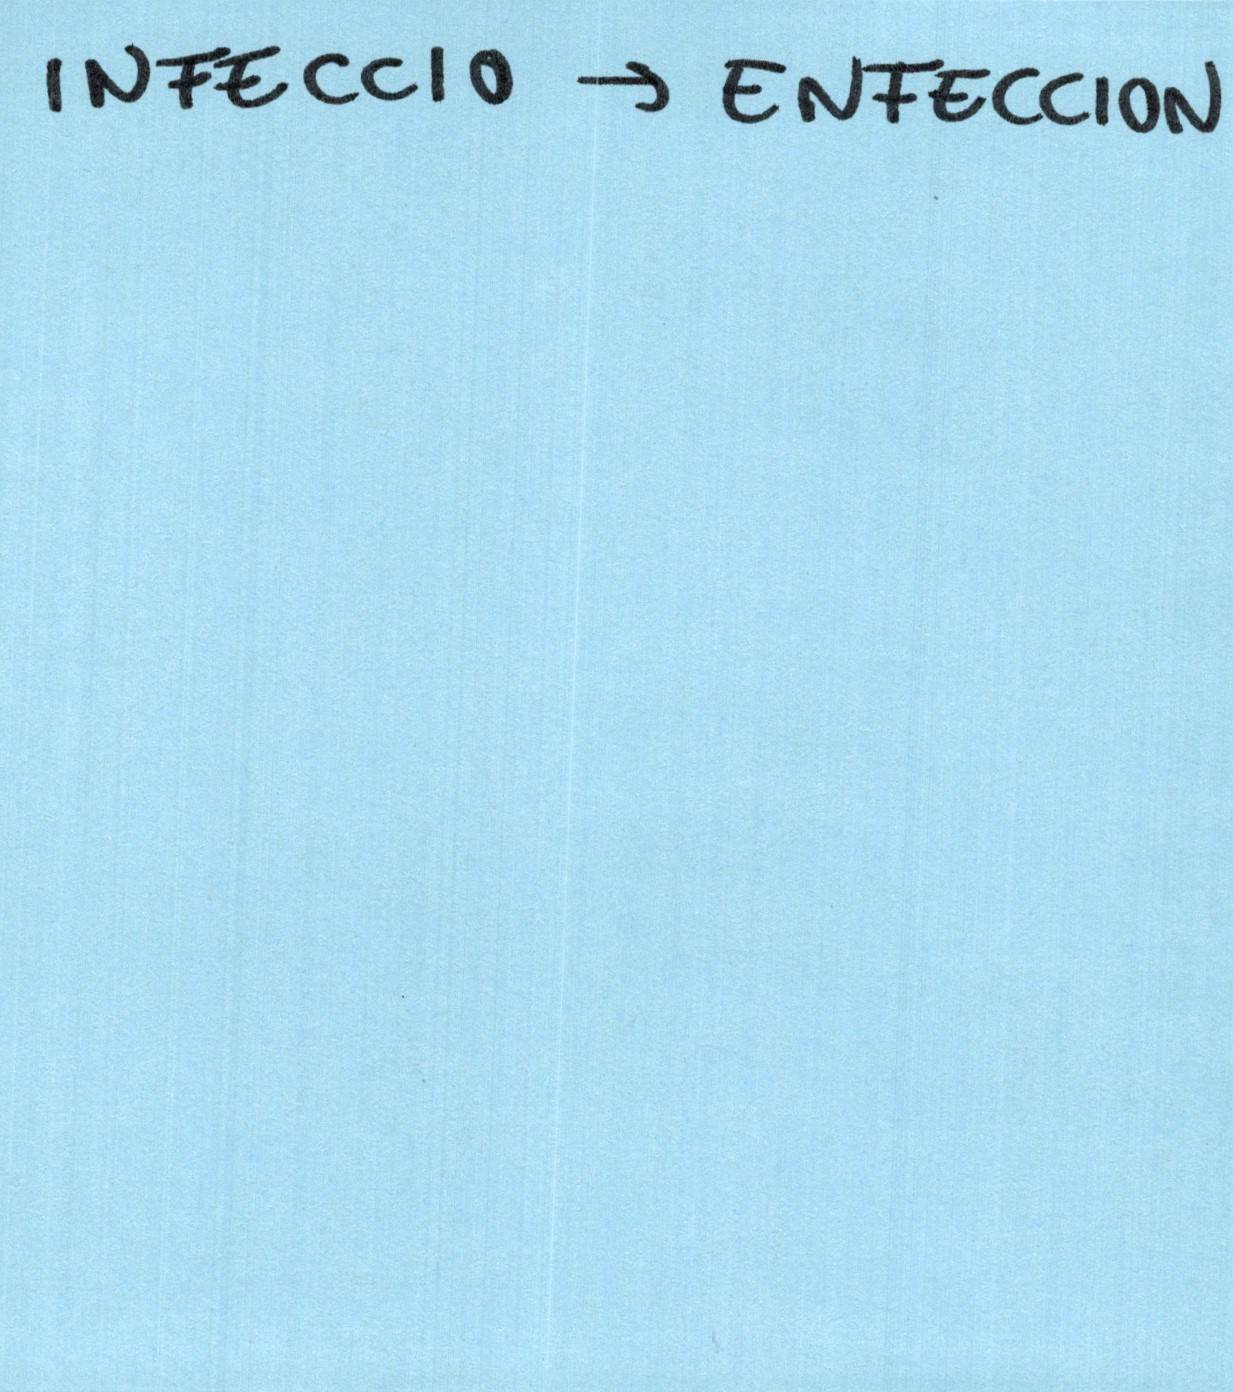 INFECCIO → ENFECCION